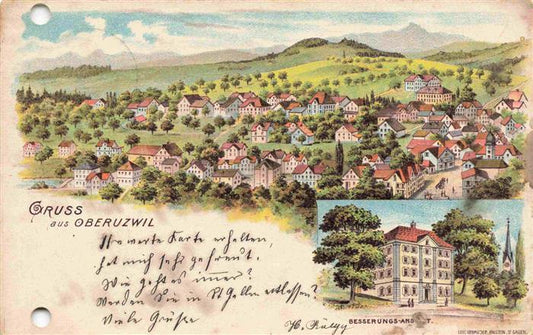 GRUSS
aus OBERUZWIL
Ihre werte Karte erhalten,
hat mich sehr gefreut.
Wie geht es immer?
Werden Sie in St Gallen entlassen?
Viele Grüsse
H.
BESSERUNGS-ANS T.